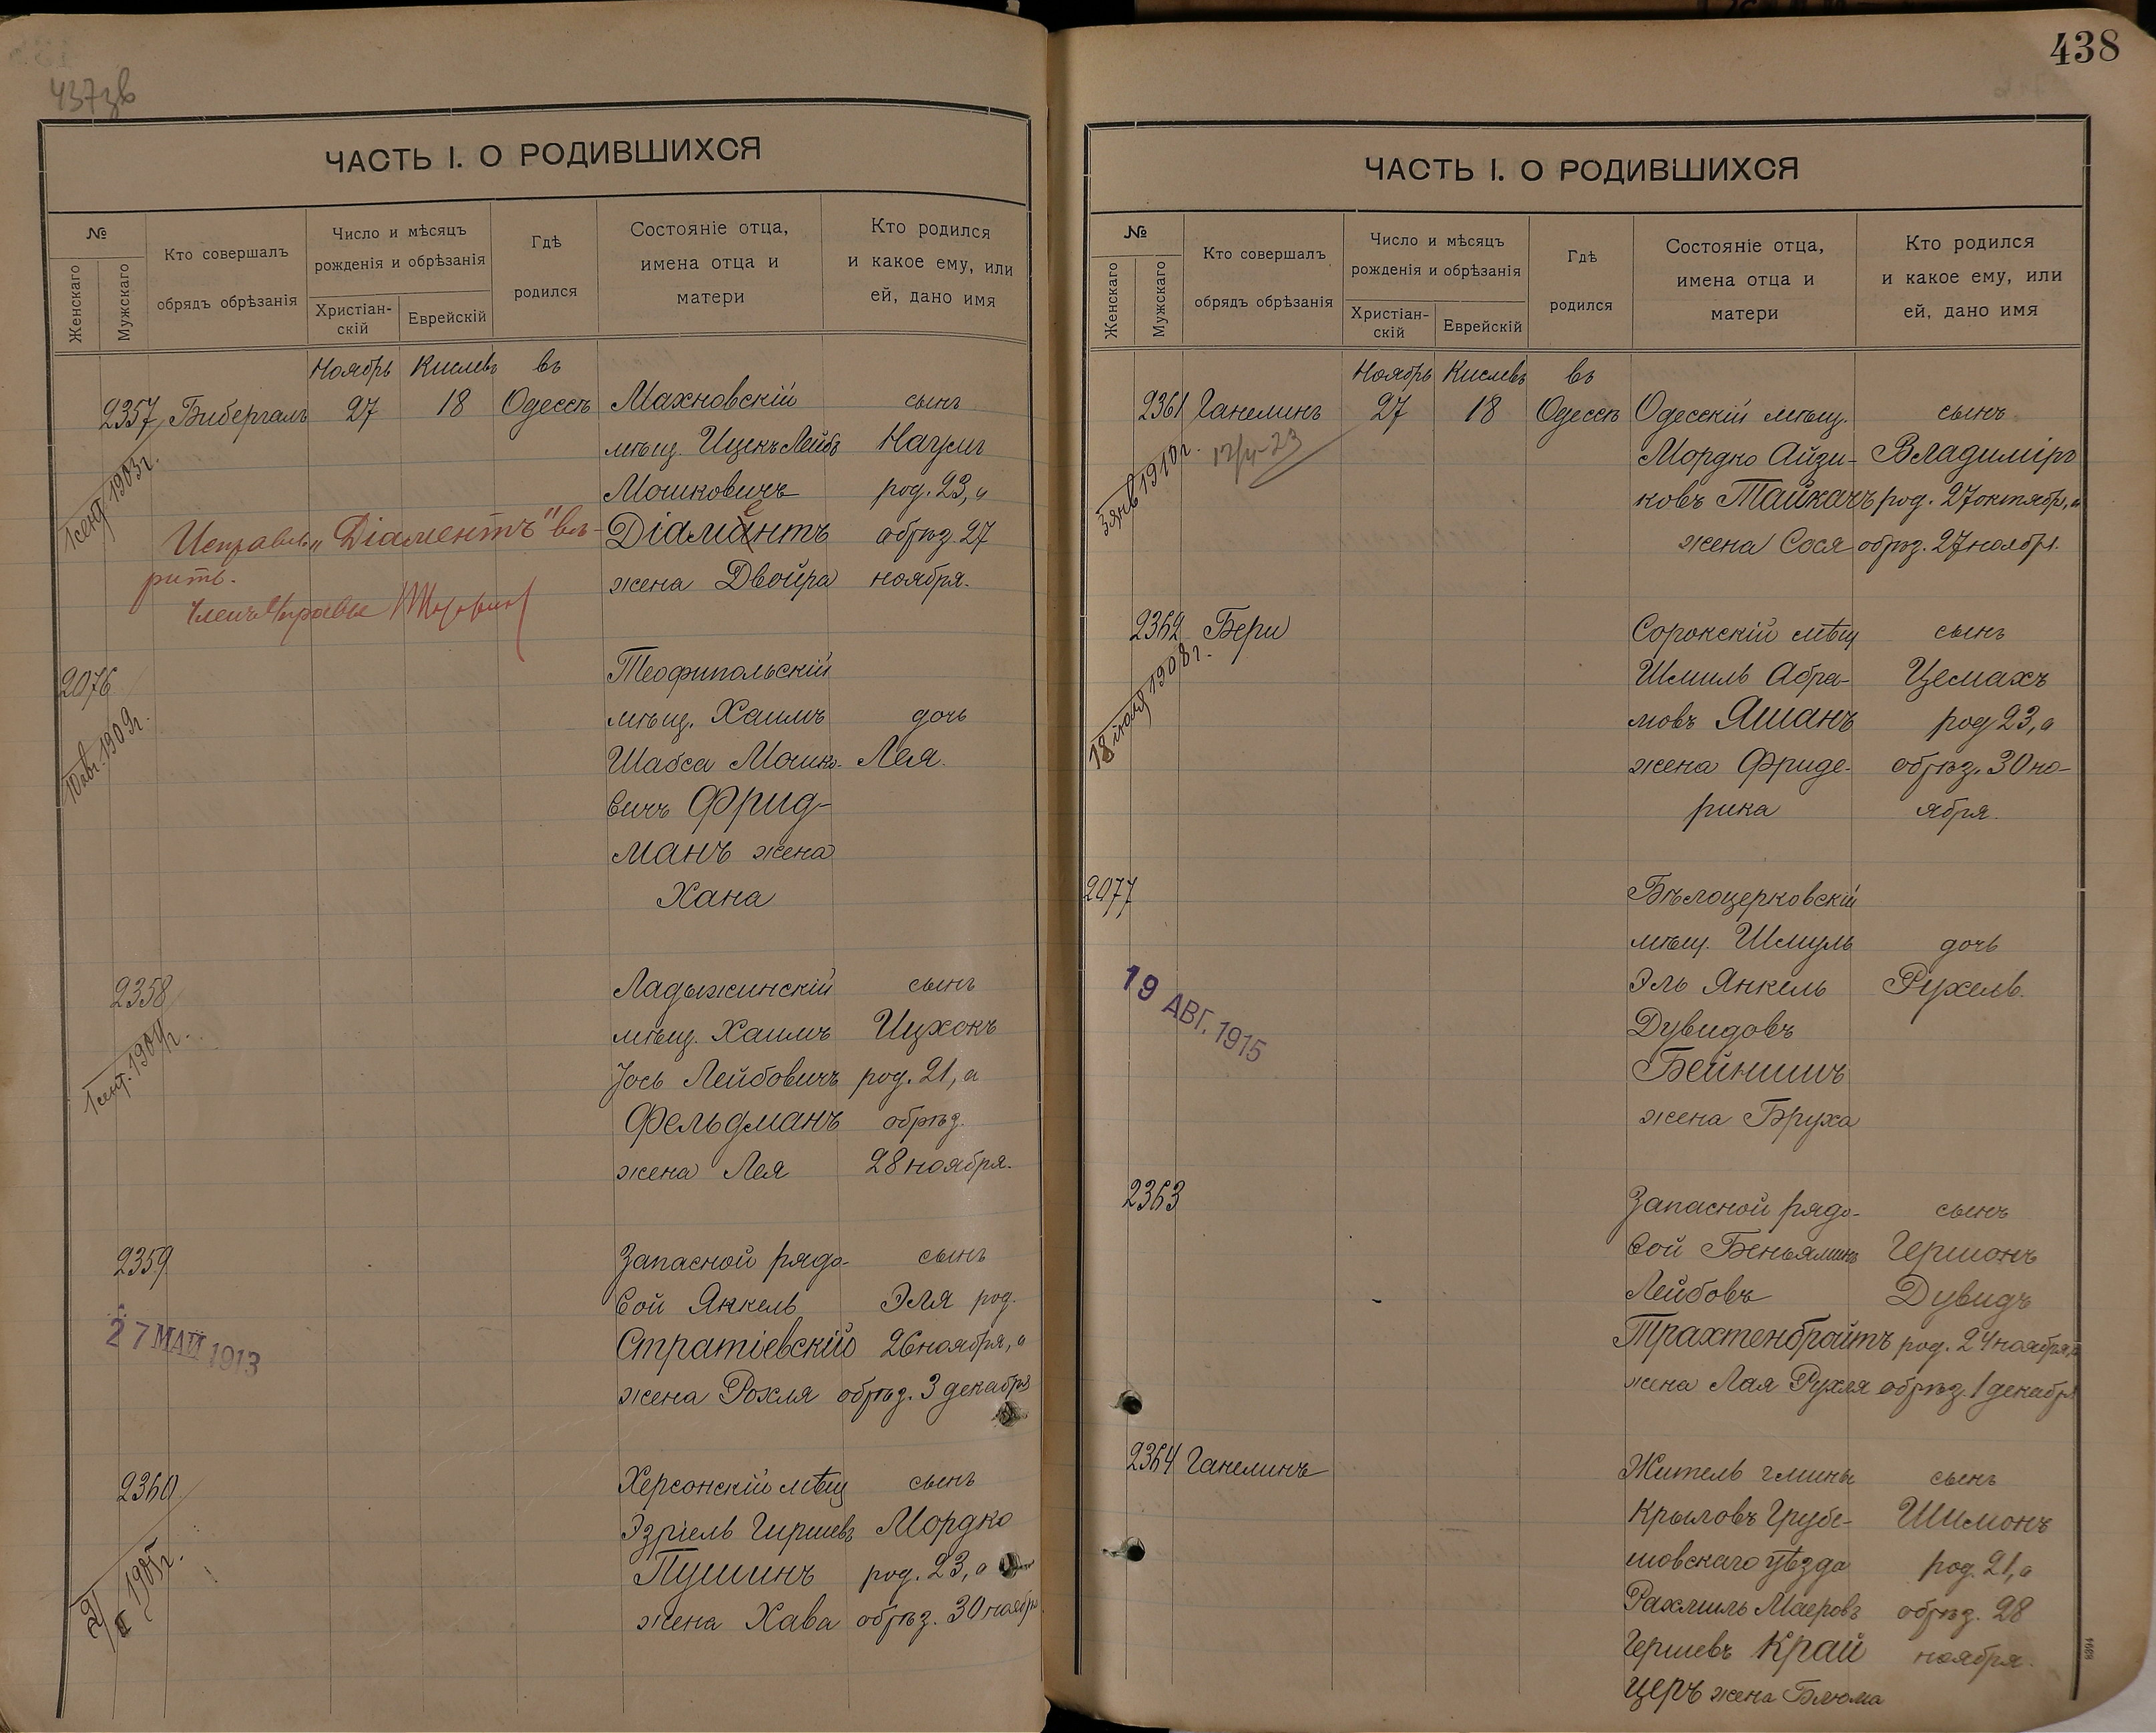 437 зв
ЧАСТЬ I. О РОДИВШИХСЯ
№
Женскаго
Мужскаго
Кто совершалъ
обрядъ обрѣзанія
Число и мѣсяцъ
рожденія и обрѣзанія
Христіан-
скій
Еврейскій
Гдѣ
родился
Состояніе отца,
имена отца и
матери
Кто родился
и какое ему, или
ей, дано имя
Ноябрь Кислевъ въ
2357 Бибергалъ 27 18 Одессѣ Махновскій сынъ
мѣщ. Ицекъ Лейбъ Наумъ
Мошковичъ род. 23, а
Діамантъ обрѣз. 27
жена Двойра ноября.
1 сент 1903 г.
Исправл. „Діаментъ" вѣ-
рить.
Членъ Управы
2076
10 авг. 1909 г.
Теофипольскій
мѣщ. Хаимъ дочь
Шабса Мошко- Лея.
вичъ Фрид-
манъ жена
Хана
2358 Ладыжинскій сынъ
мѣщ. Хаимъ Ицхокъ
Іось Лейбовичъ род. 21, а
Фельдманъ обрѣз.
жена Лея 28 ноября.
1 сент. 1904 г.
2359 Запасной рядо- сынъ
вой Янкель Эля род.
Стратіевскій 26 ноября, а
жена Рохля обрѣз. 3 декабря
27 МАЙ 1913
2360 Херсонскій мѣщ сынъ
Эзріель Гиршевъ Мордко
Пушинъ род. 23, а
жена Хава обрѣз. 30 ноября
2/II 1905 г.
438
ЧАСТЬ I. О РОДИВШИХСЯ
№
Женскаго
Мужскаго
Кто совершалъ
обрядъ обрѣзанія
Число и мѣсяцъ
рожденія и обрѣзанія
Христіан-
скій
Еврейскій
Гдѣ
родился
Состояніе отца,
имена отца и
матери
Кто родился
и какое ему, или
ей, дано имя
Ноябрь Кислевъ въ
2361 Ганелинъ 27 18 Одессѣ Одесскій мѣщ. сынъ
Мордко Айзи- Владиміръ
ковъ Тайхачъ род. 27 октябр., а
жена Сося обрѣз. 27 ноябр.
3 янв 1910 г.
2362 Бери Сорокскій мѣщ сынъ
Шмиль Абра- Цемахъ
мовъ Яшанъ род 23, а
жена Фриде- обрѣз. 30 но-
рика ября.
1908 г.
2077 Бѣлоцерковскій
мѣщ. Шмуль дочь
Эль Янкель Рухель.
Дувидовъ
Бейнишъ
жена Бруха
19 АВГ. 1915
2363 Запасной рядо- сынъ
вой Беньяминъ Гершонъ
Лейбовъ Дувидъ
Трахтенбройтъ род. 24 ноября, а
жена Лая Рухля обрѣз. 1 декабря
2364 Ганелинъ Житель гмины сынъ
Крыловъ Грубе- Шимонъ
шовскаго уѣзда род. 21, а
Рахмиль Маеровъ обрѣз. 28
Гершевъ Край ноября.
церъ жена Блюма